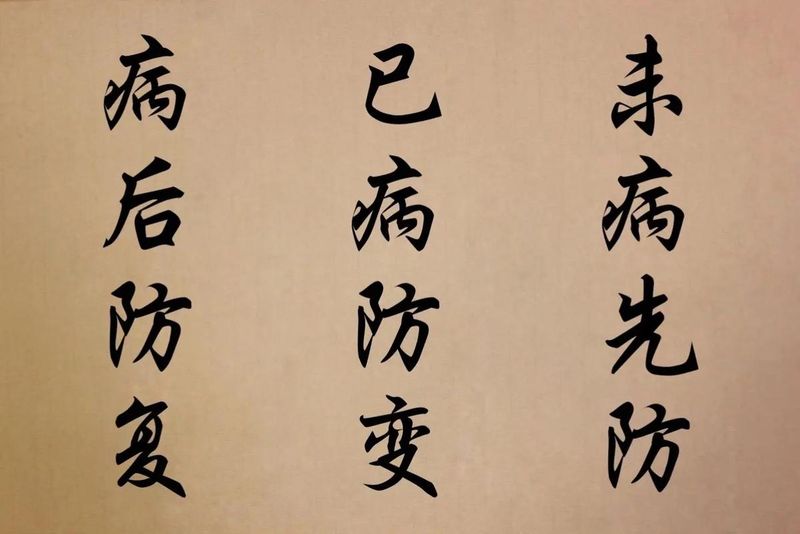 未病先防
已病防变
病后防复